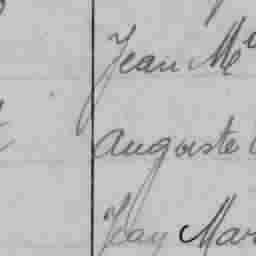 Jean M
Auguste
Jean Mar